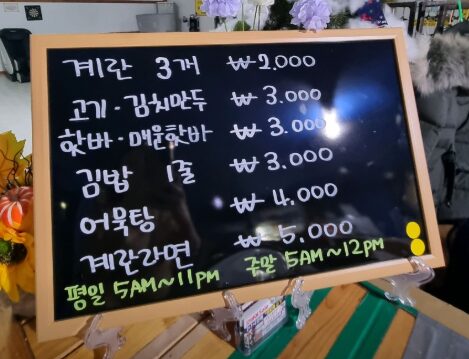 계란 3개 ₩2.000
고기·김치만두 ₩3.000
핫바·매운핫바 ₩3.000
김밥 1줄 ₩3.000
어묵탕 ₩4.000
계란라면 ₩5.000
평일 5AM~11PM 주말 5AM~12PM